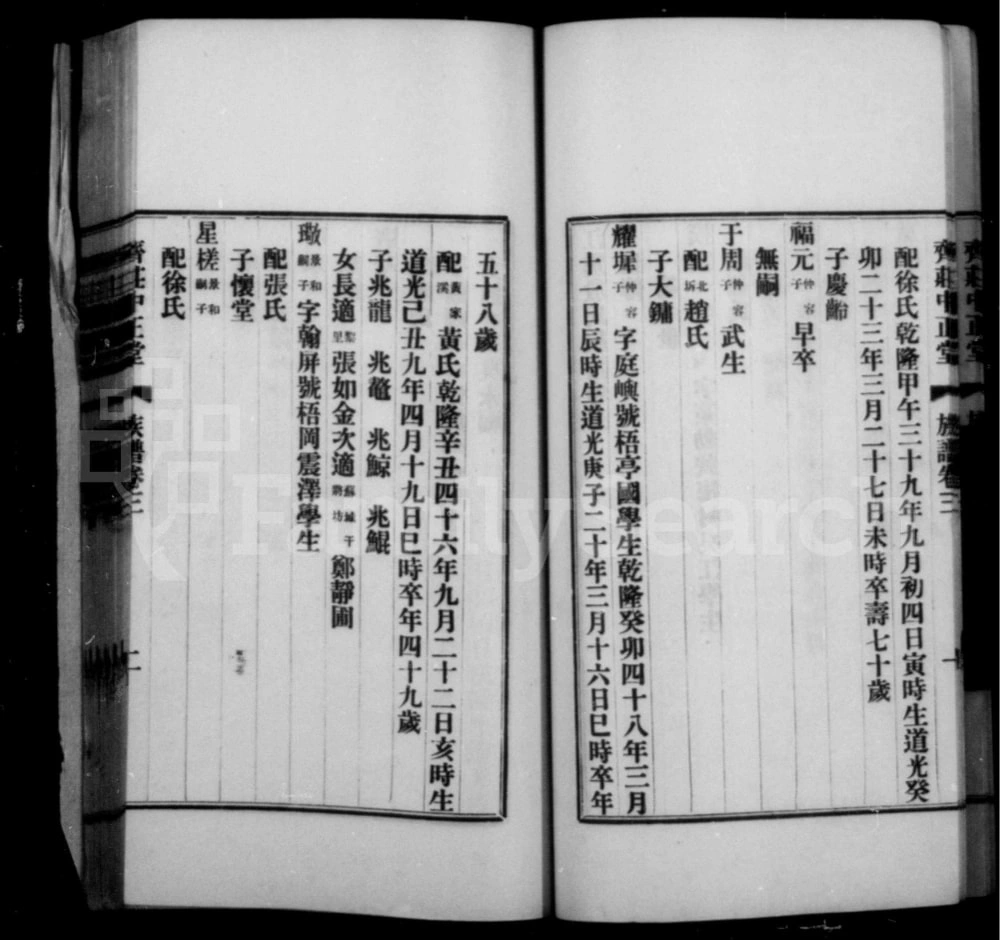 齊莊中正堂 族譜卷三 一
配徐氏乾隆甲午三十九年九月初四日寅時生道光癸
卯二十三年三月二十七日未時卒壽七十歲
子慶齡
福元仲容子早卒
無嗣
于周仲容子武生
配北坼趙氏
子大鏞
耀墀仲容子字庭嶼號梧亭國學生乾隆癸卯四十八年三月
十一日辰時生道光庚子二十年三月十六日巳時卒年
五十八歲
配黃家溪黃氏乾隆辛丑四十六年九月二十二日亥時生
道光己丑九年四月十九日巳時卒年四十九歲
子兆龍 兆鼇 兆鯨 兆鯤
女長適黎里張如金次適蘇城干將坊鄭靜圃
璥景和嗣子字翰屏號梧岡震澤學生
配張氏
子懷堂
星槎景和嗣子
配徐氏
齊莊中正堂 族譜卷三 二
FamilySearch